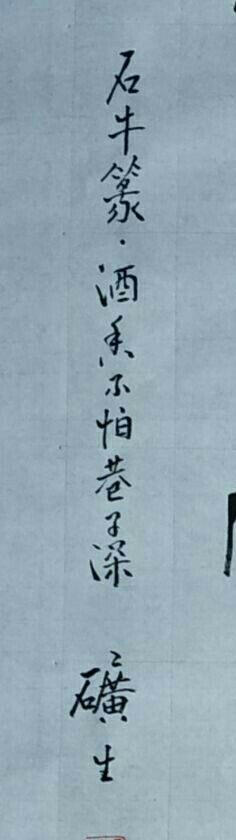 石牛篆·酒香不怕巷子深
礦生